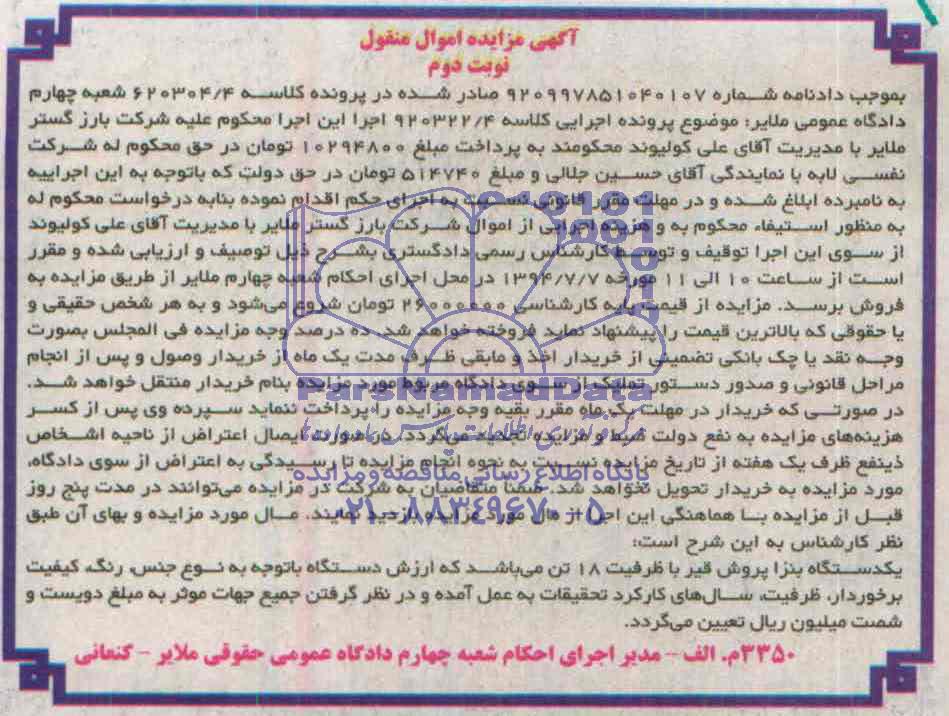 آگهی مزایده اموال منقول
نوبت دوم
بموجب دادنامه شماره ۹۲۰۹۹۷۸۵۱۰۴۰۱۰۷ صادر شده در پرونده کلاسه ۶۲۰۳۰۴/۴ شعبه چهارم
دادگاه عمومی ملایر: موضوع پرونده اجرایی کلاسه ۹۲۰۳۲۲/۴ اجرا این اجرا محکوم علیه شرکت بارز گستر
ملایر با مدیریت آقای علی کولیوند محکومند به پرداخت مبلغ ۱۰۲۹۴۸۰۰ تومان در حق محکوم له شرکت
نفسی لابه با نمایندگی آقای حسین جلالی و مبلغ ۵۱۴۷۴۰ تومان در حق دولت که باتوجه به این اجراییه
به نامبرده ابلاغ شده و در مهلت مقرر قانونی نسبت به اجرای حکم اقدام ننموده بنابه درخواست محکوم له
به منظور استیفاء محکوم به و هزینه اجرایی از اموال شرکت بارز گستر ملایر با مدیریت آقای علی کولیوند
از سوی این اجرا توقیف و توسط کارشناس رسمی دادگستری بشرح ذیل توصیف و ارزیابی شده و مقرر
است از ساعت ۱۰ الی ۱۱ مورخه ۱۳۹۴/۷/۷ در محل اجرای احکام شعبه چهارم ملایر از طریق مزایده به
فروش برسد. مزایده از قیمت پایه کارشناسی ۲۶۰۰۰۰۰۰ تومان شروع می‌شود و به هر شخص حقیقی و
یا حقوقی که بالاترین قیمت را پیشنهاد نماید فروخته خواهد شد. ده درصد وجه مزایده فی المجلس بصورت
وجه نقد یا چک بانکی تضمینی از خریدار اخذ و مابقی ظرف مدت یک ماه از خریدار وصول و پس از انجام
مراحل قانونی و صدور دستور تملیک از سوی دادگاه مربوط مورد مزایده بنام خریدار منتقل خواهد شد.
در صورتی که خریدار در مهلت یک ماه مقرر بقیه وجه مزایده را پرداخت ننماید سپرده وی پس از کسر
هزینه‌های مزایده به نفع دولت ضبط و مزایده تجدید میگردد. در صورت ایصال اعتراض از ناحیه اشخاص
ذینفع ظرف یک هفته از تاریخ مزایده نسبت به نحوه انجام مزایده تا رسیدگی به اعتراض از سوی دادگاه،
مورد مزایده به خریدار تحویل نخواهد شد. ضمنا متقاضیان به شرکت در مزایده می‌توانند در مدت پنج روز
قبل از مزایده با هماهنگی این اجرا از مال مورد مزایده بازدید نمایند. مال مورد مزایده و بهای آن طبق
نظر کارشناس به این شرح است:
یکدستگاه بنزا پروش قیر با ظرفیت ۱۸ تن می‌باشد که ارزش دستگاه باتوجه به نوع جنس، رنگ، کیفیت
برخوردار، ظرفیت، سال‌های کارکرد تحقیقات به عمل آمده و در نظر گرفتن جمیع جهات موثر به مبلغ دویست و
شصت میلیون ریال تعیین می‌گردد.
۳۳۵۰م. الف – مدیر اجرای احکام شعبه چهارم دادگاه عمومی حقوقی ملایر – کنعانی
ParsNamadData
پایگاه اطلاع رسانی مناقصه و مزایده
۰۲۱-۸۸۳۴۹۶۷۰-۵